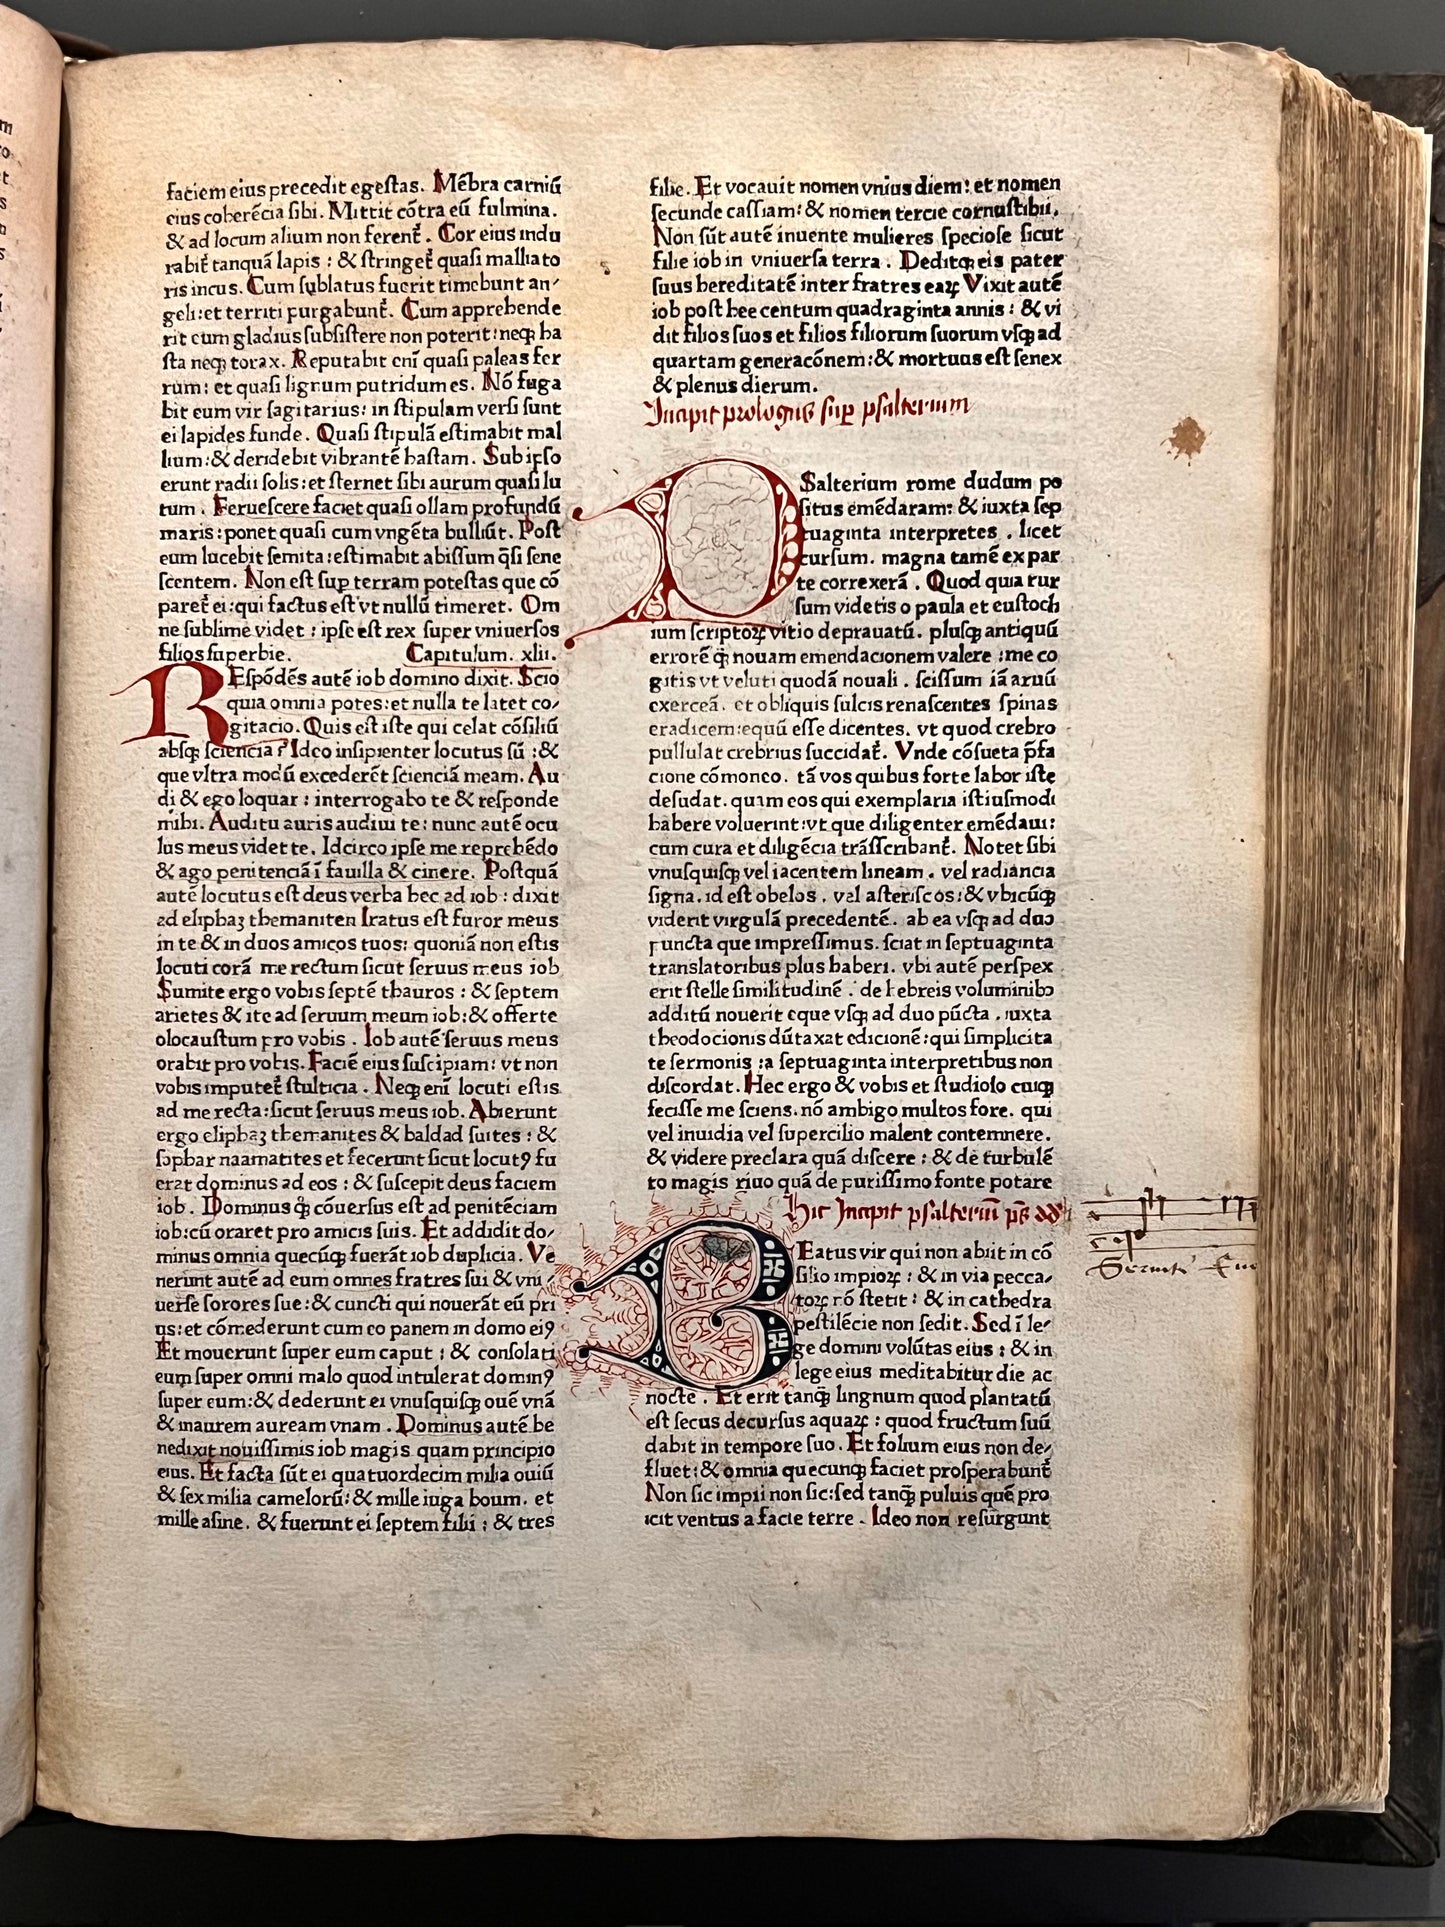 faciem eius precedit egestas. Mēbra carniū
eius coherēcia sibi. Mittit cōtra eū fulmina.
& ad locum alium non ferent᷑. Cor eius indu
rabit᷑ tanquā lapis : & stringet᷑ quasi malliato
ris incus. Cum sublatus fuerit timebunt an⸗
geli: et territi purgabunt᷑. Cum apprehende
rit eum gladius subsistere non poterit: neqꝫ ha
sta neqꝫ torax. Reputabit eni̅ quasi paleas fer
rum: et quasi lignum putridum es. Nō fuga
bit eum vir sagitarius: in stipulam versi sunt
ei lapides funde. Quasi stipulā estimabit mal
lium: & deridebit vibrantē hastam. Sub ipso
erunt radii solis: et sternet sibi aurum quasi lu
tum. Feruescere faciet quasi ollam profundū
maris: ponet quasi cum vngēta bulliūt. Post
eum lucebit semita: estimabit abissum q̄si sene
scentem. Non est suꝑ terram potestas que cō
paret᷑ ei: qui factus est vt nullū timeret. Om
ne sublime videt : ipse est rex super vniuersos
filios superbie. Capitulum. xlii.
REspōdēs autē iob domino dixit. Scio
quia omnia potes: et nulla te latet co⸗
gitacio. Quis est iste qui celat cōsiliū
absqꝫ sciencia? Ideo insipienter locutus sū :&
que vltra modū excederēt scienciā meam. Au
di & ego loquar : interrogabo te & responde
mihi. Auditu auris audiui te: nunc autē ocu
lus meus videt te. Idcirco ipse me reprehēdo
& ago penitenciā ī fauilla & cinere. Postquā
autē locutus est deus verba hec ad iob : dixit
ad eliphaz themaniten Iratus est furor meus
in te & in duos amicos tuos: quoniā non estis
locuti corā me rectum sicut seruus meus iob
Sumite ergo vobis septē thauros : & septem
arietes & ite ad seruum meum iob: & offerte
olocaustum pro vobis. Iob autē seruus meus
orabit pro vobis. Faciē eius suscipiam: vt non
vobis imputet᷑ stulticia. Neqꝫ eni̅ locuti estis
ad me recta: sicut seruus meus iob. Abierunt
ergo eliphaz themanites & baldad suites : &
sophar naamatites et fecerunt sicut locutꝰ fu
erat dominus ad eos : & suscepit deus faciem
iob. Dominus qꝫ cōuersus est ad penitēciam
iob: cū oraret pro amicis suis. Et addidit do⸗
minus omnia quecūqꝫ fuerāt iob duplicia. Ve
nerunt autē ad eum omnes fratres sui & vni⸗
uerse sorores sue: & cuncti qui nouerāt eū pri
us: et cōmederunt cum eo panem in domo eiꝰ
Et mouerunt super eum caput : & consolati
eum super omni malo quod intulerat dominꝰ
super eum: & dederunt ei vnusquisqꝫ ouē vnā
& inaurem auream vnam. Dominus autē be
nedixit nouissimis iob magis quam principio
eius. Et facta sūt ei quatuordecim milia ouiū
& sex milia camelorū: & mille iuga boum. et
mille asine. & fuerunt ei septem filii : & tres
filie. Et vocauit nomen vnius diem: et nomen
secunde cassiam: & nomen tercie cornustibii.
Non sūt autē inuente mulieres speciose sicut
filie iob in vniuersa terra. Deditqꝫ eis pater
suus hereditatē inter fratres eaꝝ Vixit autē
iob post hec centum quadraginta annis : & vi
dit filios suos et filios filiorum suorum vsqꝫ ad
quartam generacōnem: & mortuus est senex
& plenus dierum.
Incipit prologus suꝑ psalterium
PSalterium rome dudum po
situs emēdaram: & iuxta sep
tuaginta interpretes. licet
cursum. magna tamē ex par
te correxerā. Quod quia rur
sum videtis o paula et eustoch
ium scriptoꝝ vitio deprauatū. plusqꝫ antiquū
errorē q̄ nouam emendacionem valere : me co
gitis vt veluti quodā nouali. scissum iā aruū
exerceā. et obliquis sulcis renascentes spinas
eradicem: equū esse dicentes. vt quod crebro
pullulat crebrius succidat᷑. Vnde cōsueta p̄fa
cione cōmoneo. tā vos quibus forte labor iste
desudat. quam eos qui exemplaria istiusmodi
habere voluerint: vt que diligenter emēdaui:
cum cura et diligēcia trāsscribant᷑. Notet sibi
vnusquisqꝫ vel iacentem lineam. vel radiancia
signa. id est obelos. vel asteriscos: & vbicūqꝫ
viderit virgulā precedentē. ab ea vsqꝫ ad duo
puncta que impressimus. sciat in septuaginta
translatoribus plus haberi. vbi autē perspex
erit stelle similitudinē. de hebreis voluminibꝰ
additū nouerit eque vsqꝫ ad duo pūcta. iuxta
theodocionis dūtaxat edicionē: qui simplicita
te sermonis :a septuaginta interpretibus non
discordat. Hec ergo & vobis et studioso cuiqꝫ
fecisse me sciens. nō ambigo multos fore. qui
vel inuidia vel supercilio malent contemnere.
& videre preclara quā discere : & de turbulē
to magis riuo quā de purissimo fonte potare
Hic Incipit psalteriū
BEatus vir qui non abiit in cō
silio impioꝝ : & in via pecca⸗
toꝝ nō stetit : & in cathedra
pestilēcie non sedit. Sed ī le⸗
ge domini volūtas eius : & in
lege eius meditabitur die ac
nocte. Et erit tanqꝫ̄ lingnum quod plantatū
est secus decursus aquaꝝ : quod fructum suū
dabit in tempore suo. Et folium eius non de⸗
fluet: & omnia quecunqꝫ faciet prosperabunt᷑
Non sic impii non sic: sed tanqꝫ̄ puluis quē pro
icit ventus a facie terre. Ideo non resurgunt